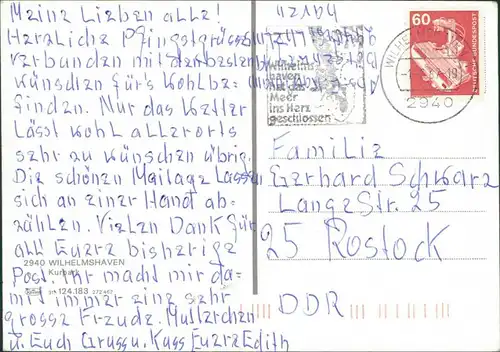 Meine Lieben alle!
Herzliche Pfingstgrüsse
verbunden mit den besten
wünschen fürs Wohlbe-
finden. Nur das Wetter
lässt wohl allerorts
sehr zu wünschen übrig.
Die schönen Maitage lassen
sich an einer Hand ab-
zählen. Vielen Dank für
all Eure bisherige
Post. Ihr macht mir da-
mit immer eine sehr
grosse Freude. Mutterchen
u. Euch Gruss u. Kuss Eure Edith
2940 WILHELMSHAVEN
Kurpark
124.183
60
DEUTSCHE BUNDESPOST
2940
Wilhelms-
haven
hat das
Meer
ins Herz
geschlossen
Familie
Gerhard Schwarz
Lange Str. 25
25 Rostock
DDR